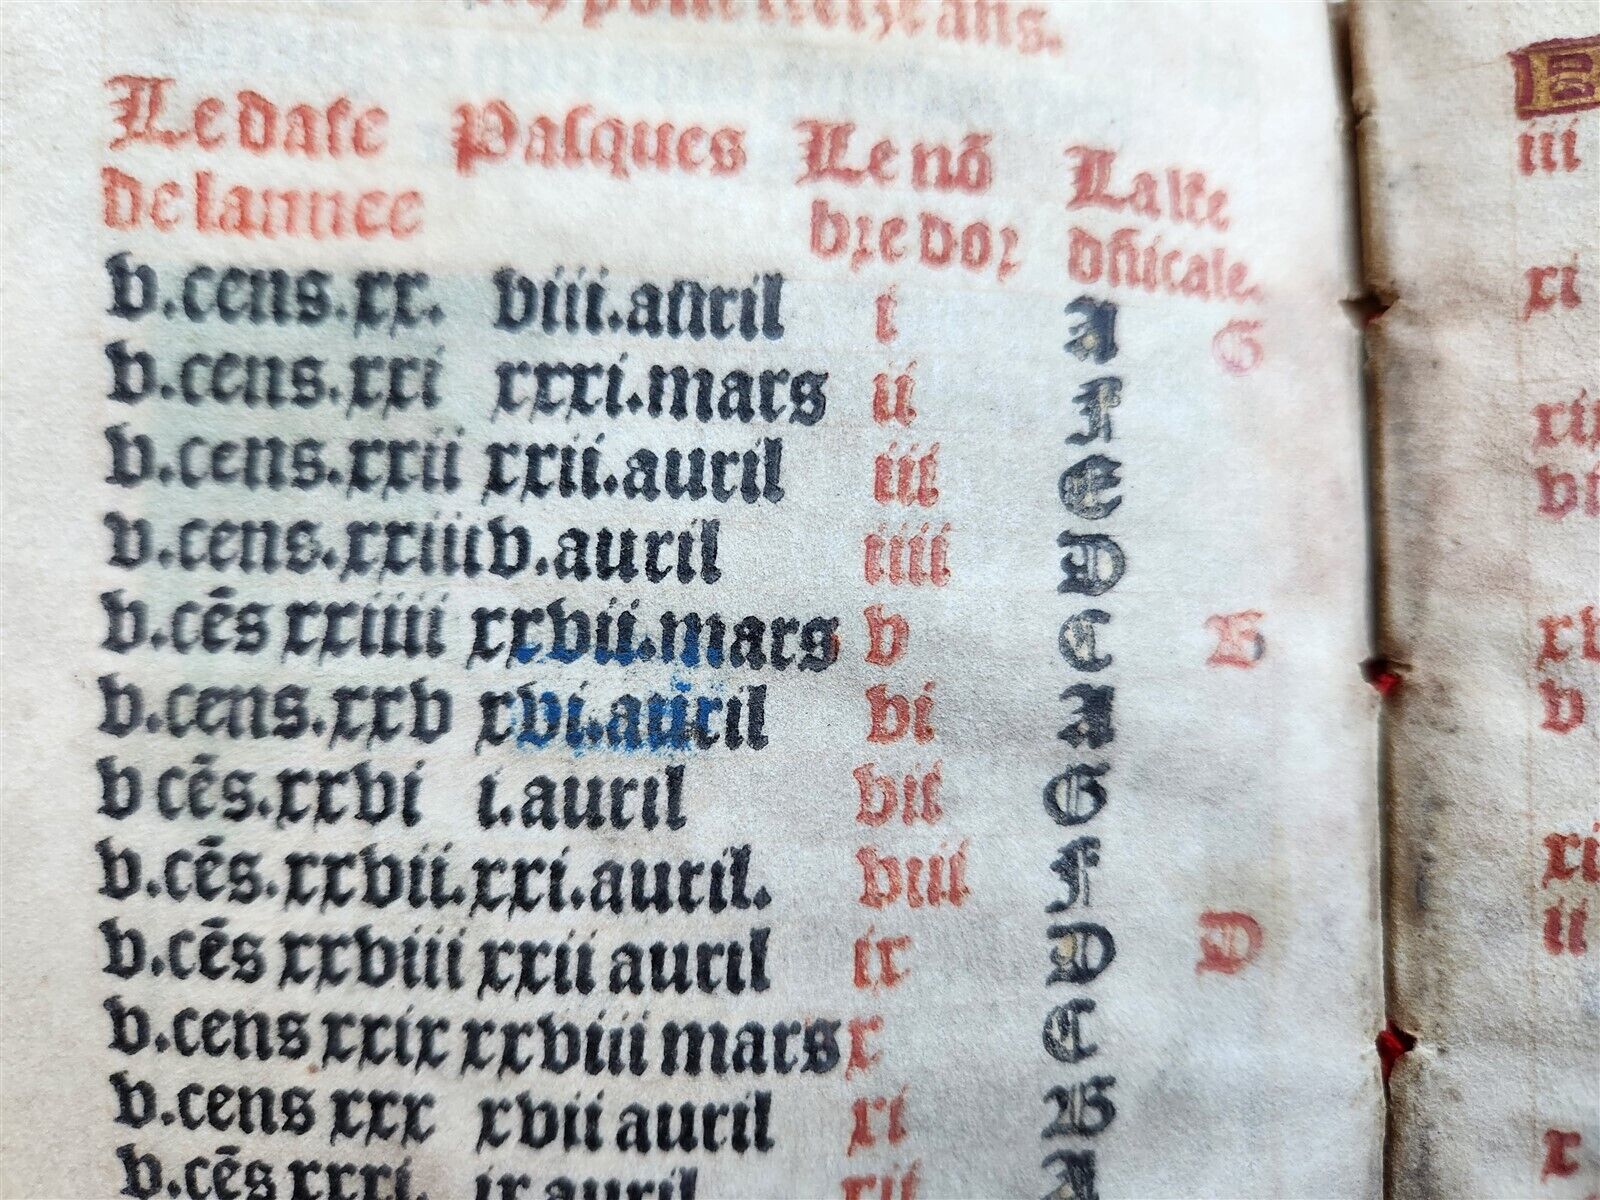 pour treize ans.
Le date Pasques Le nõ La lr̃e
de lannee bre dor dñicale.
v.cens.xx. viii.auril i A G
v.cens.xxi xxxi.mars ii F
v.cens.xxii xxii.auril iii E
v.cens.xxiii v.auril iiii D
v.cēs xxiiii xxvii.mars v C B
v.cens.xxv xvi.auril vi A
v cēs.xxvi i.auril vii G
v.cēs.xxvii.xxi.auril. viii F
v.cēs xxviii xxii auril ix D
v.cens xxix xxviii mars x C
v.cens xxx xvii auril xi B
v.cēs xxxi. ix auril xii A
D
iii
xi
v
ii
x